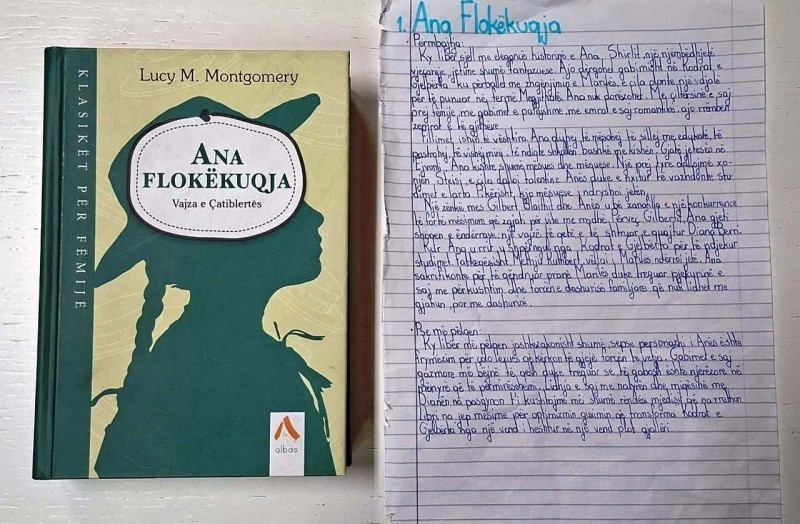 KLASIKËT PËR FËMIJË
Lucy M. Montgomery
ANA
FLOKËKUQJA
Vajza e Çatiblertës
albas
1. Ana Flokëkuqja
Përmbajtja:
Ky libër sjell me elegancë historinë e Ana Shirlit, një njëmbëdhjetë
vjeçareje jetime shumë fantazuese. Ajo dërgohet gabimisht në Kodrat e
Gjelbërta, ku përballet me zhgënjimin e Marilës, e cila donte një vajalë
për të punuar në fermë. Megjithatë, Ana nuk dorëzohet. Me çiltërsinë e saj
prej fëmije, me gabimet e patjshme, me emrat e saj romantikë, ajo rrëmben
zemrat e të gjithëve.
Fillimet ishin të vështira. Ana duhej të mësohej të sillej me edukatë, të
pastrohej, të vishej mirë, të ndiqte shkollën bashkë me kishën. Gjatë jetesës në
Evonli, Ana kishte shumë mësues dhe mësuese. Një prej tyre dallojmë zo-
njën Stejsi, e cila zbuloi talentin e Anës duke e nxitur të vazhdonte stu-
dimet e larta. Pikërisht, kjo mësuese i ndryshoi jetën.
Një zënkë mes Gilbert Blajthit dhe Anës u bë zanafilla e një konkurrence
të fortë mësimore që zgjati për vite me rradhë. Përveç Gilbertit, Ana gjeti
shoqen e ëndërrave, një vajzë të qetë e të shtruar, e quajtur Diana Berri.
Kur Ana u rrit, u shpërngul nga Kodrat e Gjelbërta për të ndjekur
studimet. Fatkeqësisht, Methju Kuthbert, vëllai i Marilës ndërroi jetë. Ana
sakrifikonte për të qëndruar pranë Marilës duke treguar mjekyrinë e
saj me përkushtim dhe forcën e dashurisë familjare që nuk lidhet me
gjakun, por me dashurinë.
Pse më pëlqen:
Ky libër më pëlqen jashtëzakonisht shumë, sepse personazhi i Anës është
frymëzim për çdo lexues që kërkon të gjejë forcën te vetja. Gabimet e saj
gazmore më bëjnë të qesh duke treguar se të gabosh është njerëzore në
mënyrë që të përmirësohem. Lidhja e saj me natyrën dhe miqësinë me
Dianën na pasqyron t'i kushtojmë më shumë rëndësi mjedisit që na rrethon.
Libri na jep mësime për optimizmin, guximin që transformoi Kodrat e
Gjelbërta nga një vend i heshtur në një vend plot gjallëri.